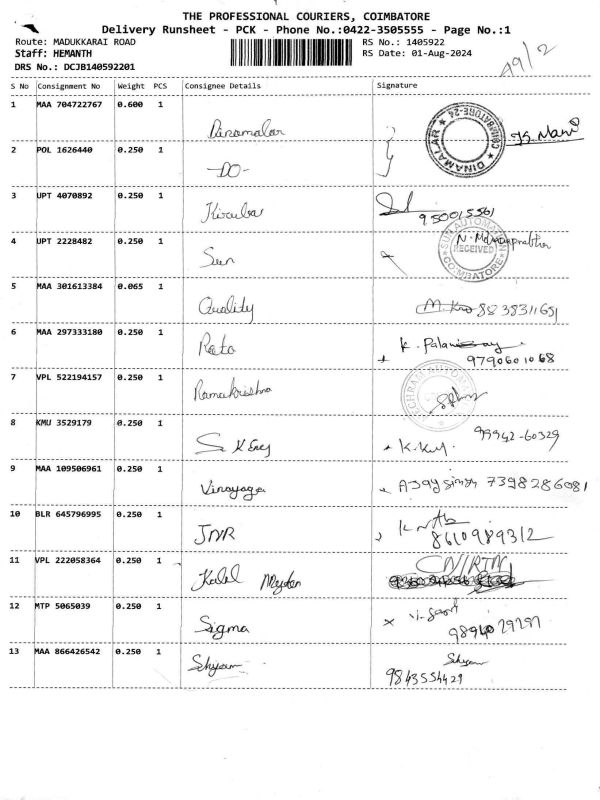 THE PROFESSIONAL COURIERS, COIMBATORE
Delivery Runsheet - PCK - Phone No.:0422-3505555 - Page No.:1
Route: MADUKKARAI ROAD RS No.: 1405922
Staff: HEMANTH RS Date: 01-Aug-2024
DRS No.: DCJB140592201
A9/2
S No Consignment No Weight PCS Consignee Details Signature
1 MAA 704722767 0.600 1 Dinamalar DINAMALAR
2 POL 1626440 0.250 1 -DO-
3 UPT 4070892 0.250 1 Kiruba 950015561
4 UPT 2228482 0.250 1 Sun SUN AUTOMATION RECEIVED COIMBATORE
5 MAA 301613384 0.065 1 Quality 8838311651
6 MAA 297333180 0.250 1 Roto K. Palanisamy
9790601068
7 VPL 522194157 0.250 1 Ramakrishna
8 KMU 3529179 0.250 1 S K Engg 99942-60329
9 MAA 109506961 0.250 1 Vinayaga Ajay Singh 7398286081
10 BLR 645796995 0.250 1 JNR 8610989312
11 VPL 222058364 0.250 1 Kalal
12 MTP 5065039 0.250 1 Sigma 9894029297
13 MAA 866426542 0.250 1 Sehyam Sehyam
9843554429